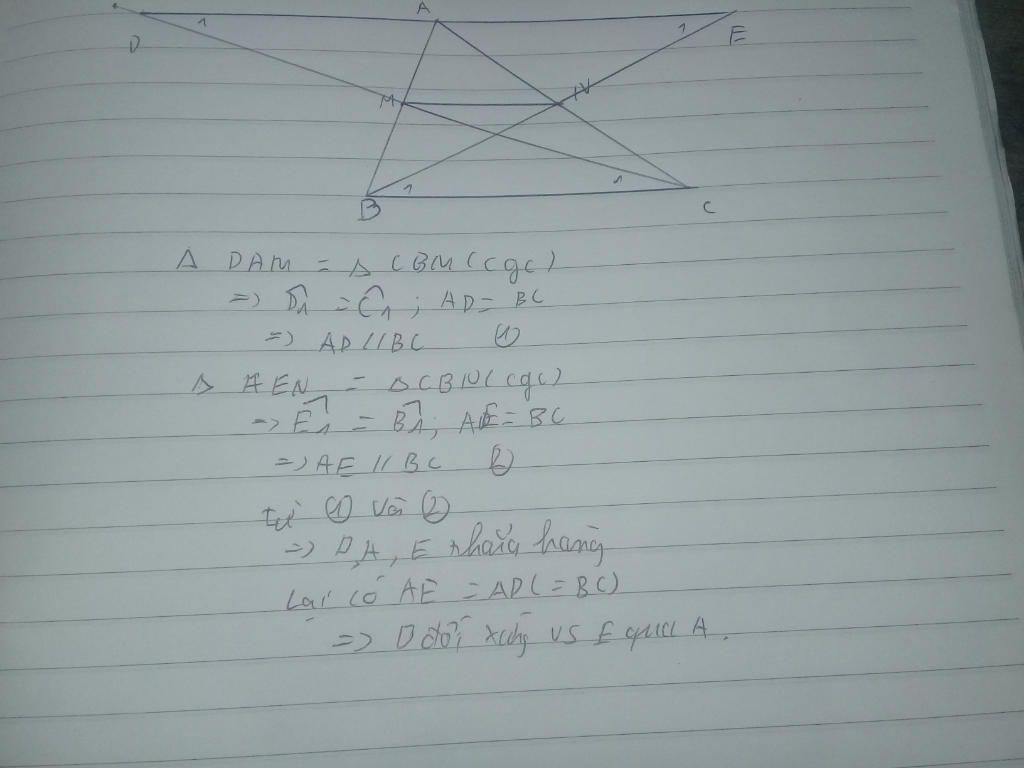 A
D 1 1 E
M N
1 1
B C
Δ DAM = Δ CBM (cgc)
=> D̂1 = Ĉ1 ; AD = BC
=> AD // BC ①
Δ AEN = Δ CBN (cgc)
=> Ê1 = B̂1 ; AE = BC
=> AE // BC ②
từ ① và ②
=> D, A, E thẳng hàng
Lại có AE = AD (= BC)
=> D đối xứng vs E qua A.